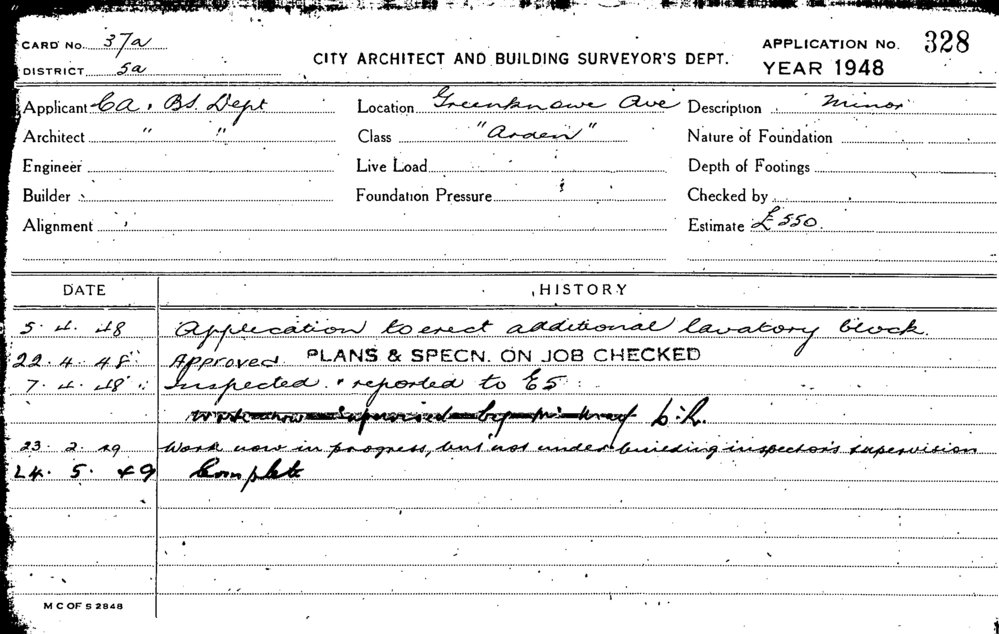 CARD No. 37a
DISTRICT 5a
CITY ARCHITECT AND BUILDING SURVEYOR'S DEPT.
APPLICATION No. 328
YEAR 1948
Applicant CA. BS. Dept Location Greenknowe Ave Description Minor
Architect " " Class "Arden" Nature of Foundation
Engineer Live Load Depth of Footings
Builder Foundation Pressure Checked by
Alignment Estimate £550.
DATE HISTORY
5. 4. 48 Application to erect additional lavatory block.
22. 4. 48 Approved. PLANS & SPECN. ON JOB CHECKED
7. 4. 48 Inspected & reported to ES
work now supervised by
23. 2. 49 Work now in progress, but not under building inspector's supervision
24. 5. 49 Complete
M C OF S 2848